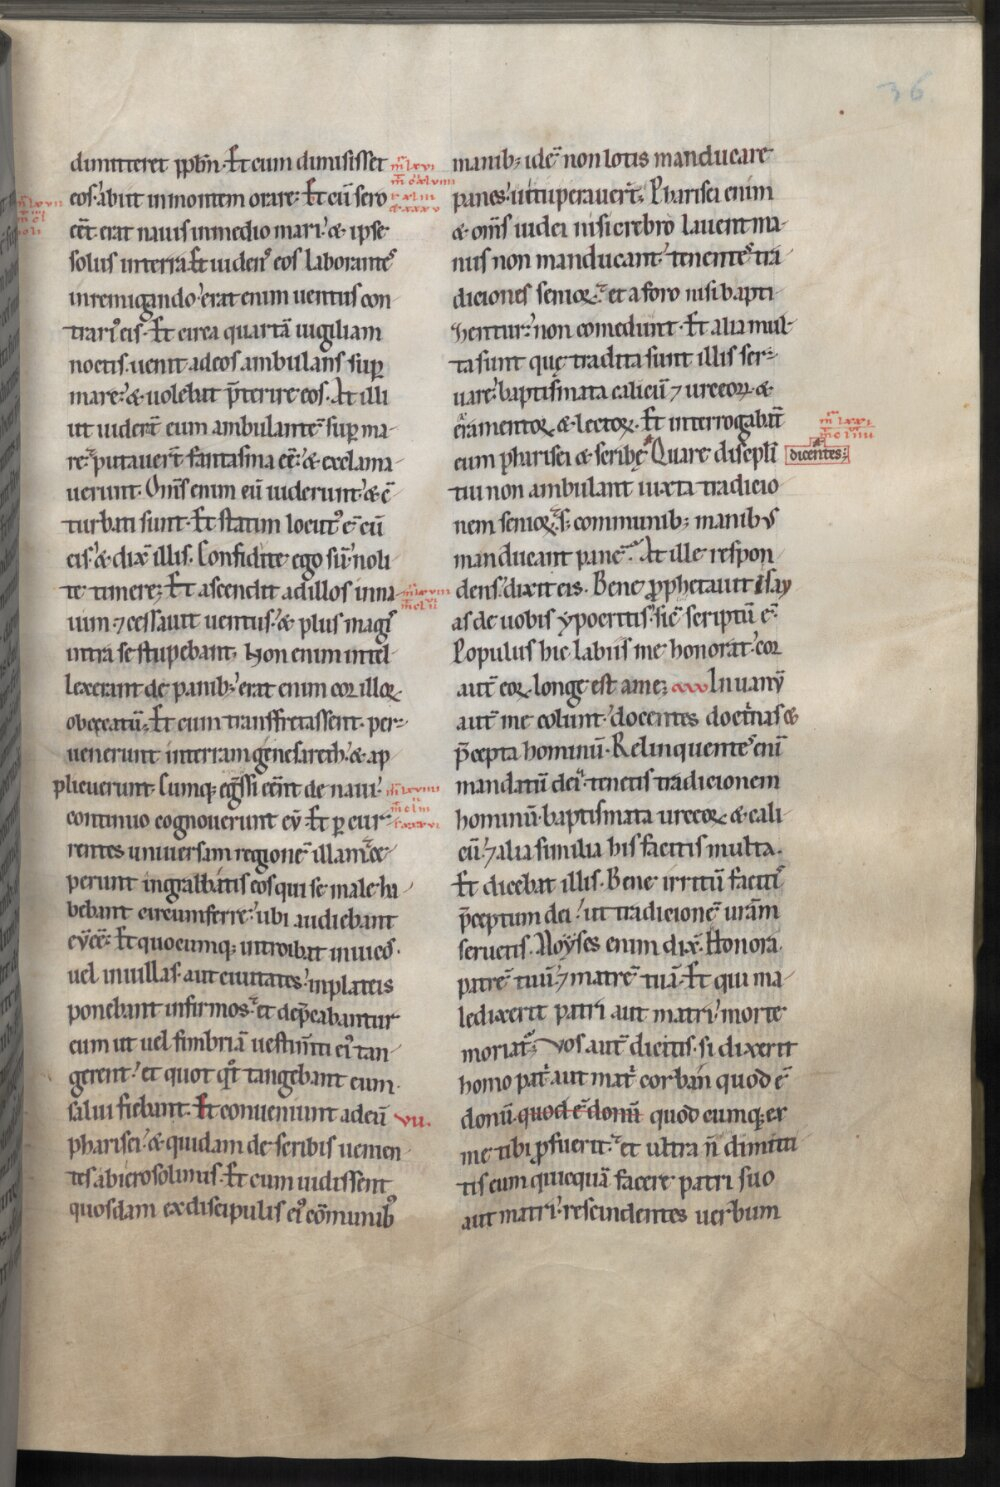 36
dimitteret pplm̄. Et cum dimisisset
eos: abiit in montem orare. Et cū sero
eēt. erat nauis in medio mari. & ipse
solus in terra. Et uidens eos laborantes̄
in remigando: erat enim uentus con
trari' eis. Et circa quartā uigiliam
noctis. uenit ad eos ambulans suꝑ
mare: & uolebat p̄terire eos. At illi
ut uider̄t eum ambulantē suꝑ ma
re: putauer̄t fantasma eē: & exclama
uerunt. Om̄s enim eū uiderunt: & c̄
turbati sunt. Et statim locut' ē cū
eis: & dix̄ illis. Confidite ego sū: noli
te timere; Et ascendit ad illos in na
uim. ⁊ cessauit uentus: & plus magis
intra se stupebant. Non enim intel
lexerant de panib; erat enim cor illoꝝ
obcęcatū; Et cum transfretassent. per
uenerunt in terram genesareth: & ap
plicuerunt. Cumq; eg̃ssi eēnt de naui:
continuo cognouerunt eū. Et ꝑ cur
rentes uniuersam regionē illam: cę
perunt in grabbatis eos qui se male ha
bebant circumferre: ubi audiebant
eū eē. Et quocumq; introibat in uicos.
uel in uillas. aut ciuitates: in plateis
ponebant infirmos: et dep̄cabantur
eum ut uel fimbriā uestim̄ti ei' tan
gerent: et quot qͦt tangebant eum.
salui fiebant. Et conueniunt ad eū vii.
pharisei: & quidam de scribis uenien
tes ab ierosolimis. Et cum uidissent
quosdam ex discipulis ei' cōmunib'
manib; id ē non lotis manducare
panes: uituperauer̄t; Pharisei enim
& om̄s iudei nisi crebro lauent ma
nus non manducant: tenentes tra
diciones senioꝝ: et a foro nisi bapti
zentur: non comedunt. Et alia mul
ta sunt quę tradita sunt illis ser
uare: baptismata calicū ⁊ urceoꝝ. &
eramentoꝝ & lectoꝝ. Et interrogabāt
eum pharisei & scribę Quare discipli dicentes;
tui non ambulant iuxta tradicio
nem senioꝝ: s; communib; manibus
manducant panē? At ille respon
dens: dixit eis. Bene ꝓphetauit isay
as de uobis ypocritis: sic̄ scriptū ē.
Populus hic labiis me honorat. cor
aut̄ eoꝝ. longe est a me; In uanū
aut̄ me colunt: docentes doctͥnas &
p̄cepta hominū. Relinquentes enī
mandatū dei: tenetis tradicionem
hominū. baptismata urceoꝝ & cali
cū: ⁊ alia similia his facitis multa.
Et dicebat illis. Bene irritū facitis
p̄ceptum dei: ut tradicionē ur̄am
seruetis. Moyses enim dix̄. Honora
patrē tuū: ⁊ matrē tuā. Et qui ma
ledixerit patri aut matri: morte
moriat̄; Vos aut̄ dicitis. si dixerit
homo pat̄ aut mat̄ corban quod ē
donū. quod ē donū quodcumq; ex
me tibi ꝓfuerit: et ultra n̄ dimitti
tis eum quicquā facere patri suo
aut matri: rescindentes uerbum